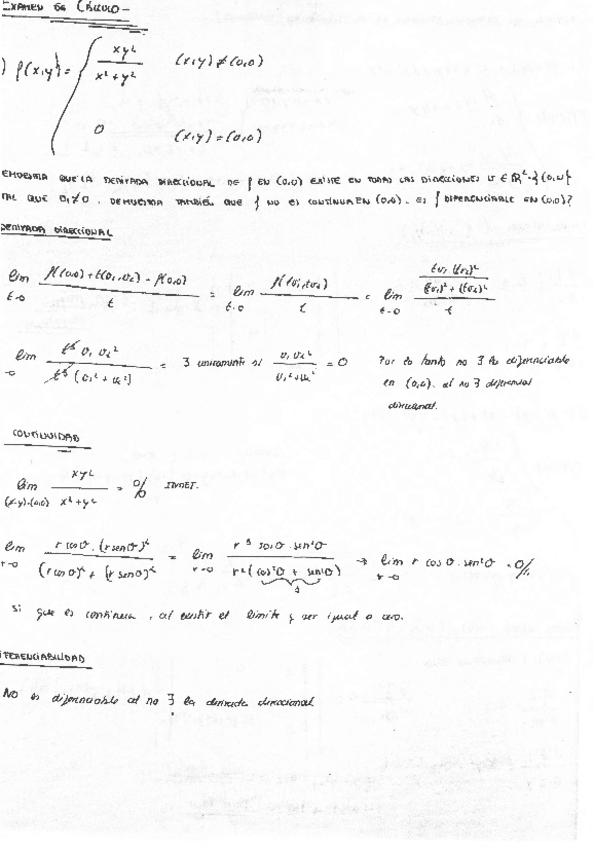 EXAMEN DE CÁLCULO-
) f(x,y) = { xy² / x² + y² (x,y) ≠ (0,0)
0 (x,y) = (0,0)
EMUESTRA QUE LA DERIVADA DIRECCIONAL DE f EN (0,0) EXISTE EN TODAS LAS DIRECCIONES v ∈ ℝ² - {(0,0)}
TAL QUE v₁ ≠ 0. DEMUESTRA TAMBIÉN QUE f NO ES CONTINUA EN (0,0). ES f DIFERENCIABLE EN (0,0)?
DERIVADA DIRECCIONAL
lim t→0 f((0,0) + t(v₁,v₂)) - f(0,0) / t = lim t→0 f(tv₁,tv₂) / t = lim t→0 tv₁(tv₂)² / (tv₁)² + (tv₂)² / t
lim →0 t³ v₁ v₂² / t³ (v₁² + v₂²) = ∃ unicamente si v₁ v₂² / v₁² + v₂² = 0 Por lo tanto no ∃ la diferenciable
en (0,0). al no ∃ diferencial
direccional.
CONTINUIDAD
lim (x,y)→(0,0) xy² / x² + y² = 0/0 INDET.
lim r→0 r cosθ · (r senθ)² / (r cosθ)² + (r senθ)² = lim r→0 r³ cosθ · sen²θ / r² (cos²θ + sen²θ) → lim r→0 r cosθ · sen²θ = 0//
1
Si que es continua, al existir el limite y ser igual a cero.
IFERENCIABILIDAD
NO es diferenciable al no ∃ la derivada direccional.